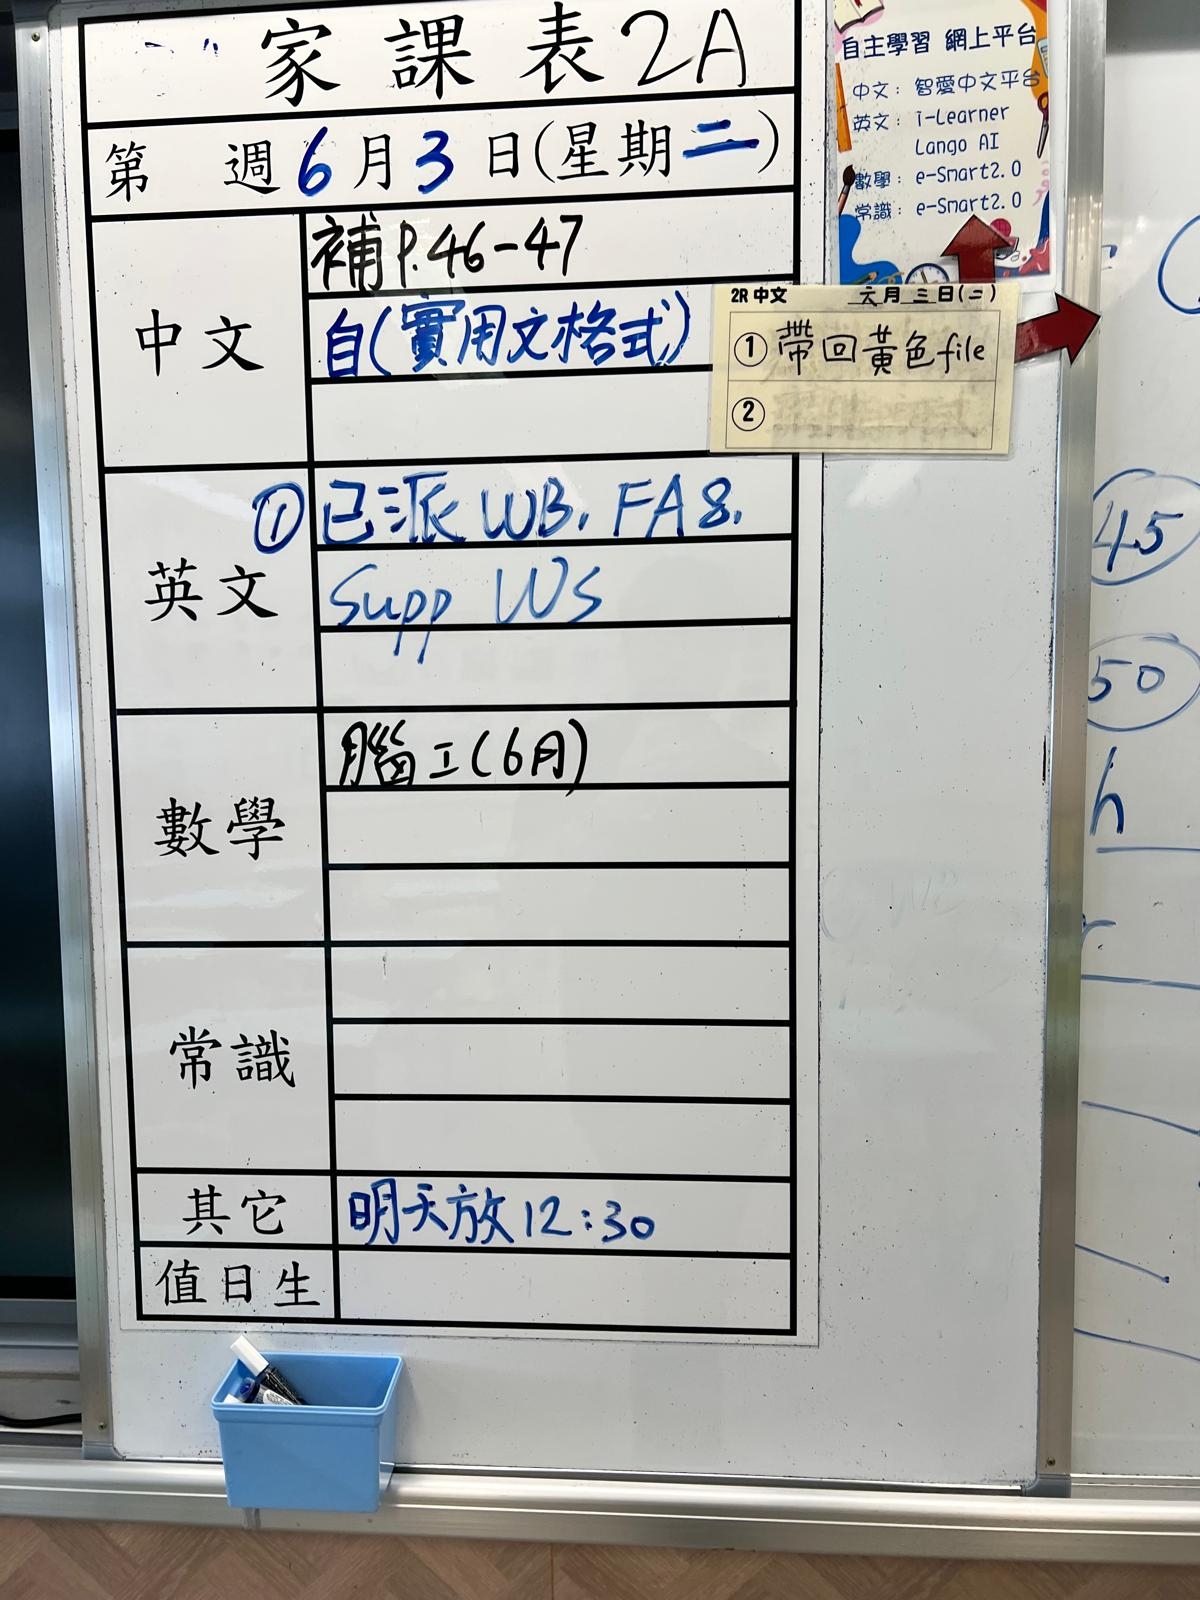 家課表2A
第 週6月3日(星期二)
中文
補P.46-47
自(實用文格式)
英文
①已派 WB, FA8,
Supp WS
數學
腦工(6月)
常識
其它
明天放12:30
值日生
自主學習 網上平台
中文：智愛中文平台
英文：i-Learner
Lango AI
數學：e-Smart2.0
常識：e-Smart2.0
2R中文 六月三日(二)
①帶回黃色file
②
45
50
h
r